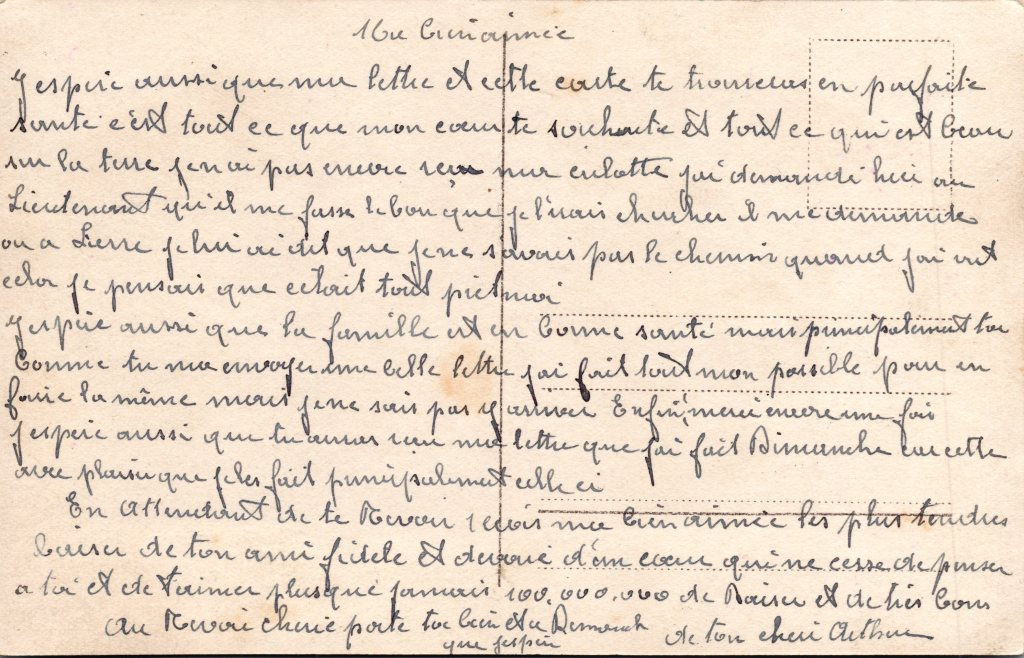 Ma bien aimée
J espere aussi que ma lettre et cette carte te trouveras en parfaite
santé c'est tout ce que mon cœur te souhaite et tout ce qui est beau
sur la terre je n ai pas encore reçu ma culotte j'ai demandé hier au
Lieutenant qu'il me fasse le bon que je l'irais chercher il me demande
ou a Lierre je lui ai dit que je ne savais pas le chemin quand j'ai
cela je pensais que cetait tout
J espere aussi que la famille est en bonne santé mais principalement toi
Comme tu ma envoyer une belle lettre j'ai fait tout mon possible pour en
faire la même mais je ne sais pas y arriver Enfin, merci encore une fois
J espere aussi que tu auras reçu ma lettre que j'ai fait Dimanche car cette
avec plaisir que je les fait principalement celle ci
En Attendant de te Revoir reçois ma bien aimée les plus tendres
baiser de ton ami fidele et devoué d'un cœur qui ne cesse de penser
a toi et de t'aimer plus que jamais 100,000,000 de Baiser et de très bons
Au Revoir cherie porte toi bien et a Dimanche de ton cheri Arthur
que j espere